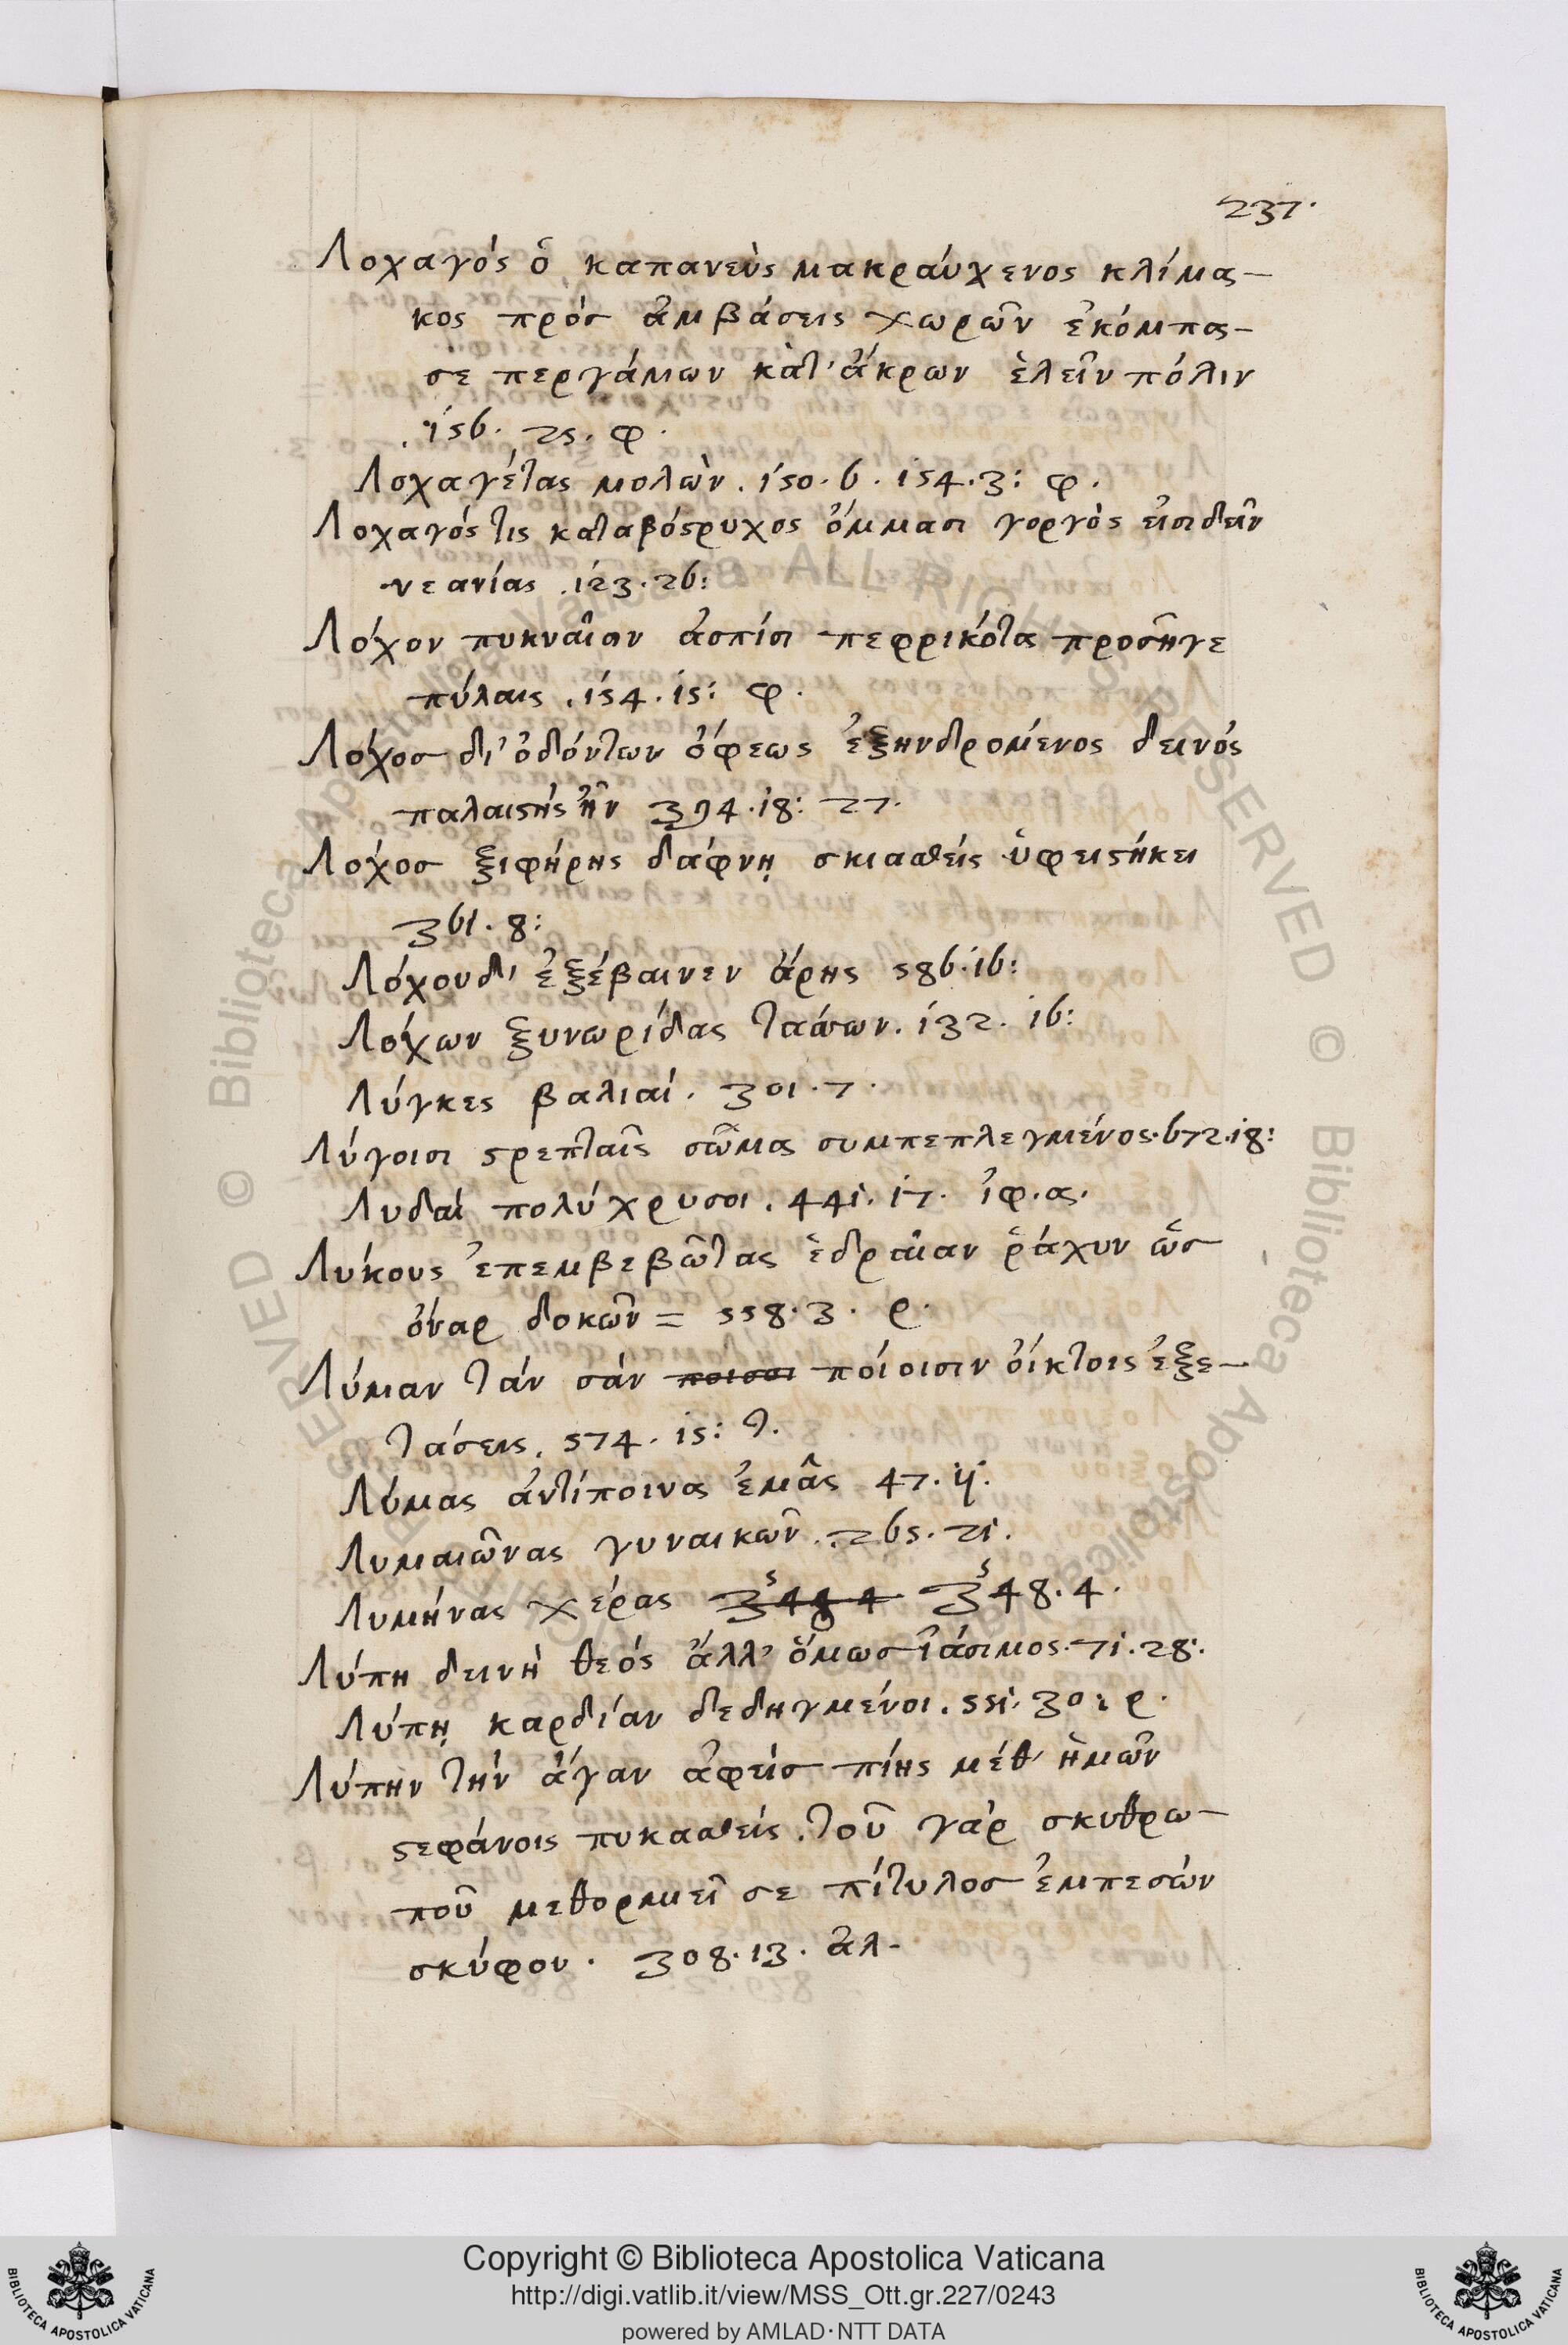 237.
Λοχαγός ὁ καπανεὺς μακραύχενος κλίμα-
κος πρὸσ ἀμβάσεις χωρῶν ἐκόμπα-
σε περγάμων κὰτ' ἄκρων ἑλεῖν πόλιν
.156. 25. φ.
Λοχαγέτας μολὼν. 150. 6. 154. 3: φ.
Λοχαγός τις καταβόςρυχος ὄμμασι γοργὸς εἰσιδεῖν
νεανίας .123. 26:
Λόχον πυκναῖσιν ἀσπίσι πεφρικότα προσῆγε
πύλαις .154. 15: φ.
Λόχοσ δι' ὀδόντων ὄφεως ἐξηνδρομένος δεινός
παλαιςὴς ἦν 394. 18: 27.
Λόχοσ ξιφήρης δάφνῃ σκιασθείς ὑφειςήκει
361. 8:
Λόχου δ' ἐξέβαινεν ἄρης 586. 16:
Λόχων ξυνωρίδας ταάσων. 132. 16:
Λύγκες βαλιαί. 301. 7.
Λύγοισι ςρεπταῖς σῶμα συμπεπλεγμένος. 672. 18:
Λυδαί πολύχρυσοι. 441. 17. ἰφ. α.
Λύκους ἐπεμβεβῶτας ἑδραίαν ῥάχυν ὥσ
ὄναρ δοκῶν = 558. 3. ρ.
Λύμαν τάν σάν ποισοι ποίοισιν οἴκτοις ἐξε-
τάσεις. 574. 15: τ.
Λύμας ἀντίποινας ἐμᾶς 47. ij.
Λυμαιῶνας γυναικῶν. 265. 21.
Λυμήνας χέρας 348. 4.
Λύπη δεινὴ θεός ἄλλ' ὅμωσ ἰάσιμος. 71. 28:
Λύπῃ καρδίαν δεδηγμένοι. 551. 30: ρ.
Λύπην τὴν ἄγαν ἀφείσ πίης μέθ' ἡμῶν
ςεφάνοις πυκασθείς. τοῦ γάρ σκυθρω-
ποῦ μεθορμεῖ σε πίτυλοσ ἐμπεσών
σκύφου. 308. 13. ἀλ-
Copyright © Biblioteca Apostolica Vaticana
http://digi.vatlib.it/view/MSS_Ott.gr.227/0243
powered by AMLAD·NTT DATA